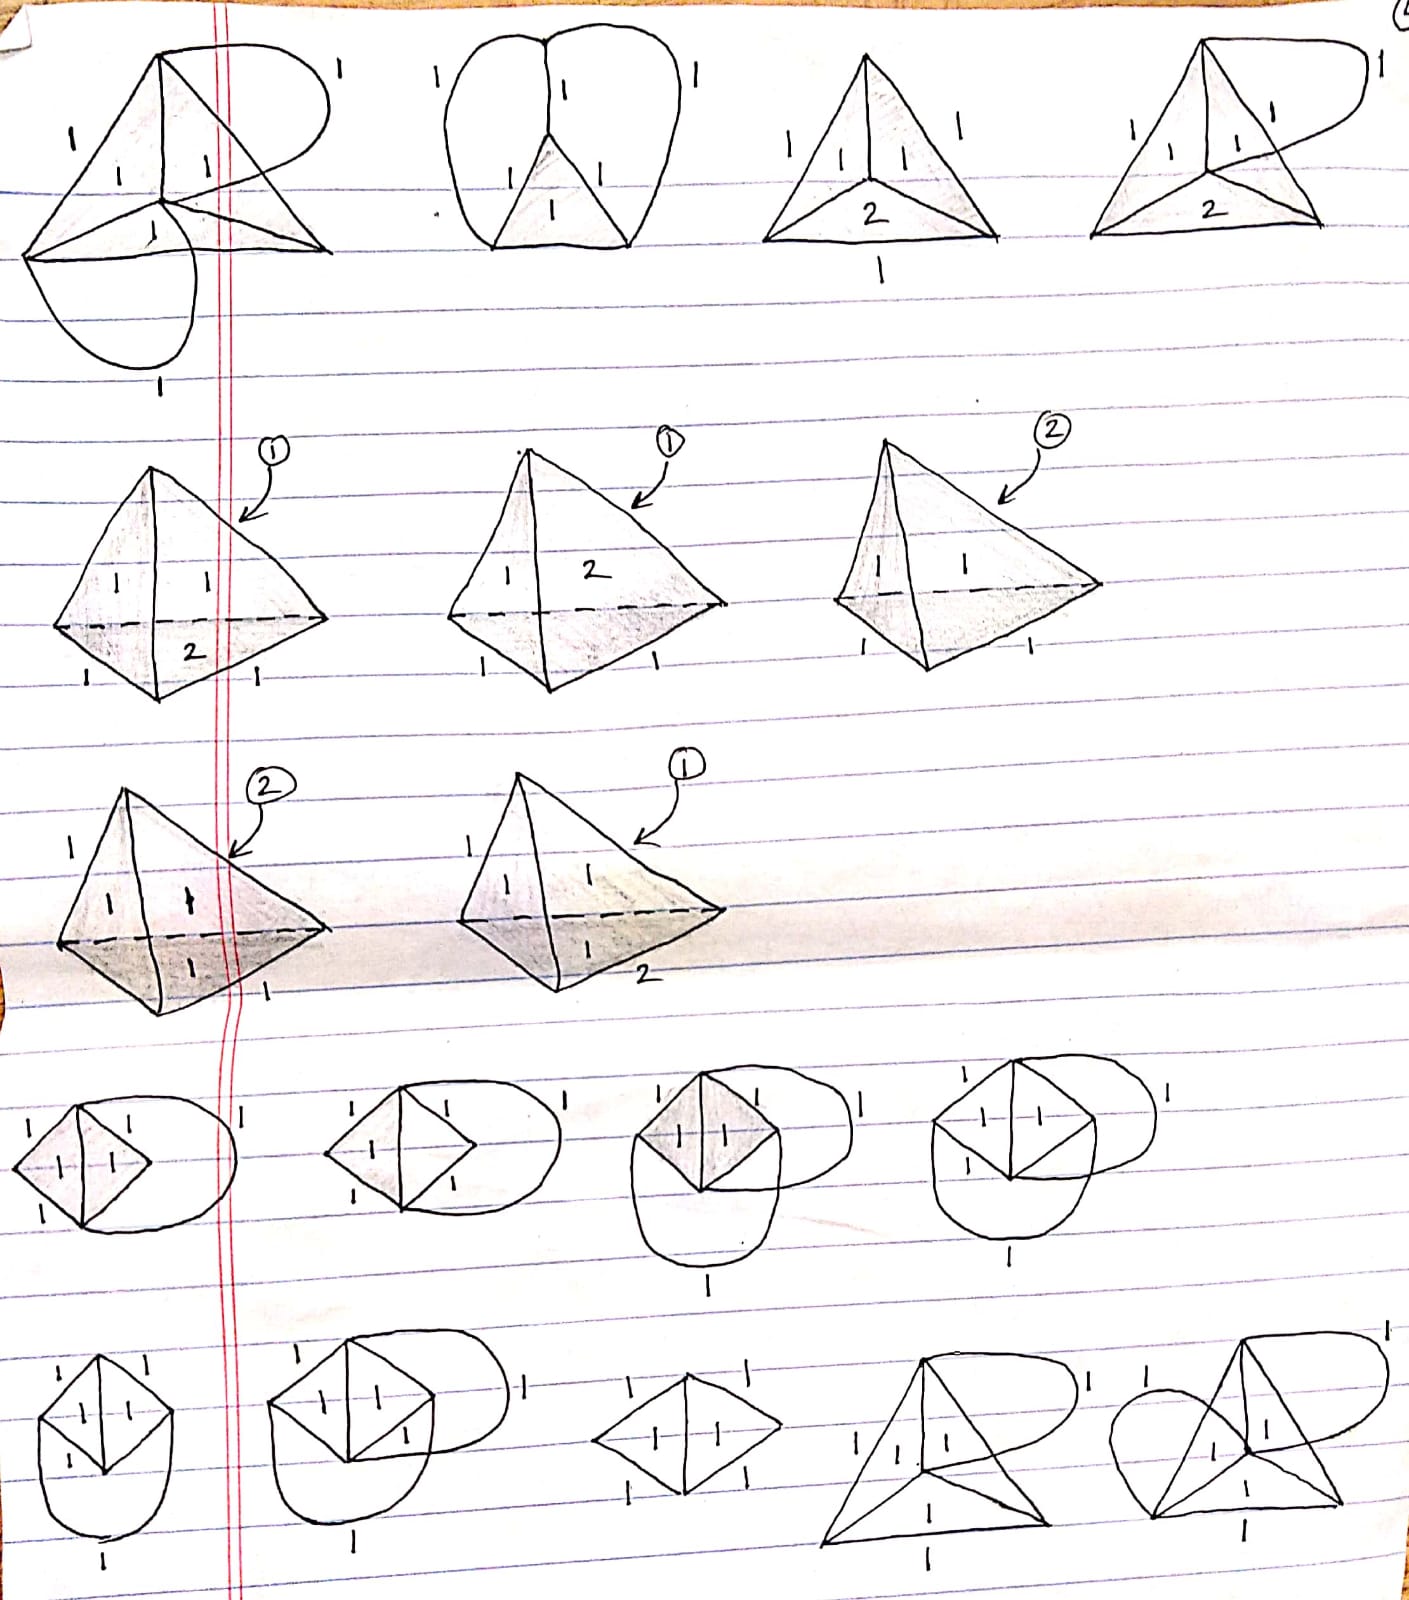 1 1 1 1 1
1 1 1 1 1 1
1 1 1 1 2 1
1 1 1 1 1 2
① 1 1 2 1 1
① 1 2 1 1
② 1 1 1 1
② 1 1 1 1 1
① 1 1 1 1 2
1 1 1 1 1 1
1 1 1 1 1 1
1 1 1 1 1 1
1 1 1 1 1 1
1 1 1 1 1 1
1 1 1 1 1 1
1 1 1 1 1 1
1 1 1 1 1 1
1 1 1 1 1 1